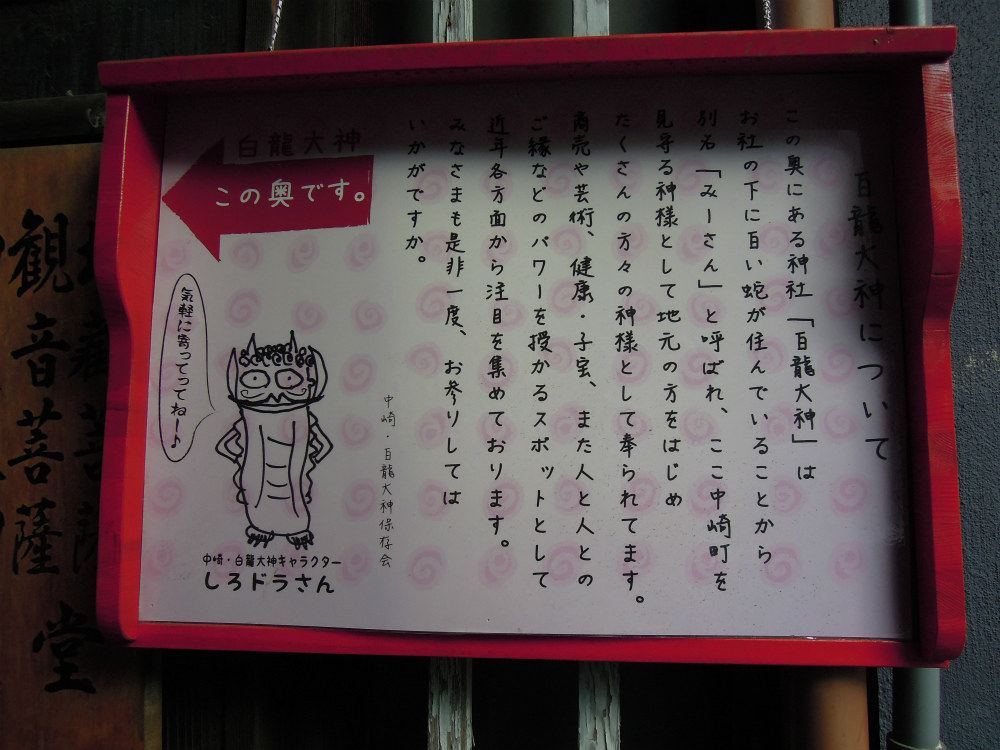 白龍大神について
この奥にある神社「白龍大神」は
お社の下に白い蛇が住んでいることから
別名「みーさん」と呼ばれ、ここ中崎町を
見守る神様として地元の方をはじめ
たくさんの方々の神様として奉られてます。
商売や芸術、健康・子宝、また人と人との
ご縁などのパワーを授かるスポットとして
近年各方面から注目を集めております。
みなさまも是非一度、お参りしては
いかがですか。
中崎・白龍大神保存会
白龍大神
この奥です。
気軽に寄ってってねー♪
中崎・白龍大神キャラクター
しろドラさん
地蔵菩薩堂
観音菩薩